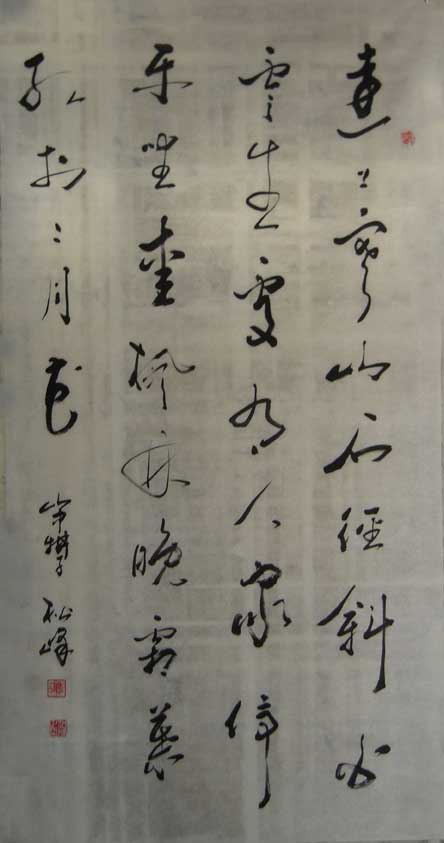 遠上寒山石徑斜白
雲生處有人家停
車坐愛楓林晚霜葉
紅於二月花
松峰